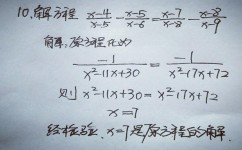 10.解方程 x-4/x-5 - x-5/x-6 = x-7/x-8 - x-8/x-9
解,原方程化为
-1/x²-11x+30 = -1/x²-17x+72
则 x²-11x+30=x²-17x+72
x=7
经检验,x=7是原方程的解.